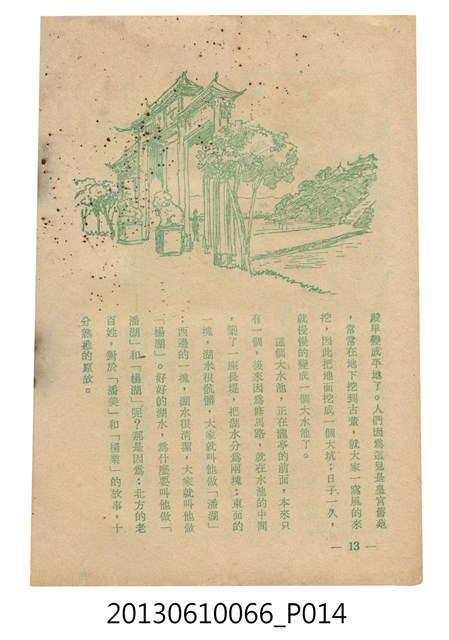 殿早變成平地了。人們因為這兒是皇宮舊址
，常常在地下挖到古董，就大家一窩風的來
挖，因此把地面挖成一個大坑；日子一久，
就慢慢的變成一個大水池了。
這個大水池，正在龍亭的前面，本來只
有一個，後來因為修馬路，就在水池的中間
，築了一座長堤，把湖水分為兩塊：東面的
一塊，湖水很骯髒，大家就叫他做「潘湖」
；西邊的一塊，湖水很清潔，大家就叫他做
「楊湖」。好好的湖水，為什麼要叫他做「
潘湖」和「楊湖」呢？那是因為：北方的老
百姓，對於「潘美」和「楊業」的故事，十
分熟悉的原故。
— 13 —
20130610066_P014